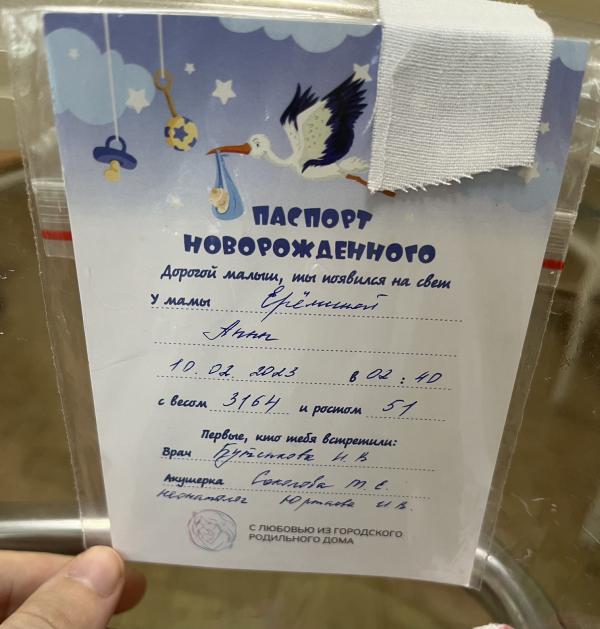 ПАСПОРТ
НОВОРОЖДЕННОГО
Дорогой малыш, ты появился на свет
У мамы Ерёминой
Анны
10.02.2023 в 02:40
с весом 3164 и ростом 51
Первые, кто тебя встретили:
Врач И В
Акушерка Соколова Т. С.
неонатолог И. В.
С ЛЮБОВЬЮ ИЗ ГОРОДСКОГО
РОДИЛЬНОГО ДОМА